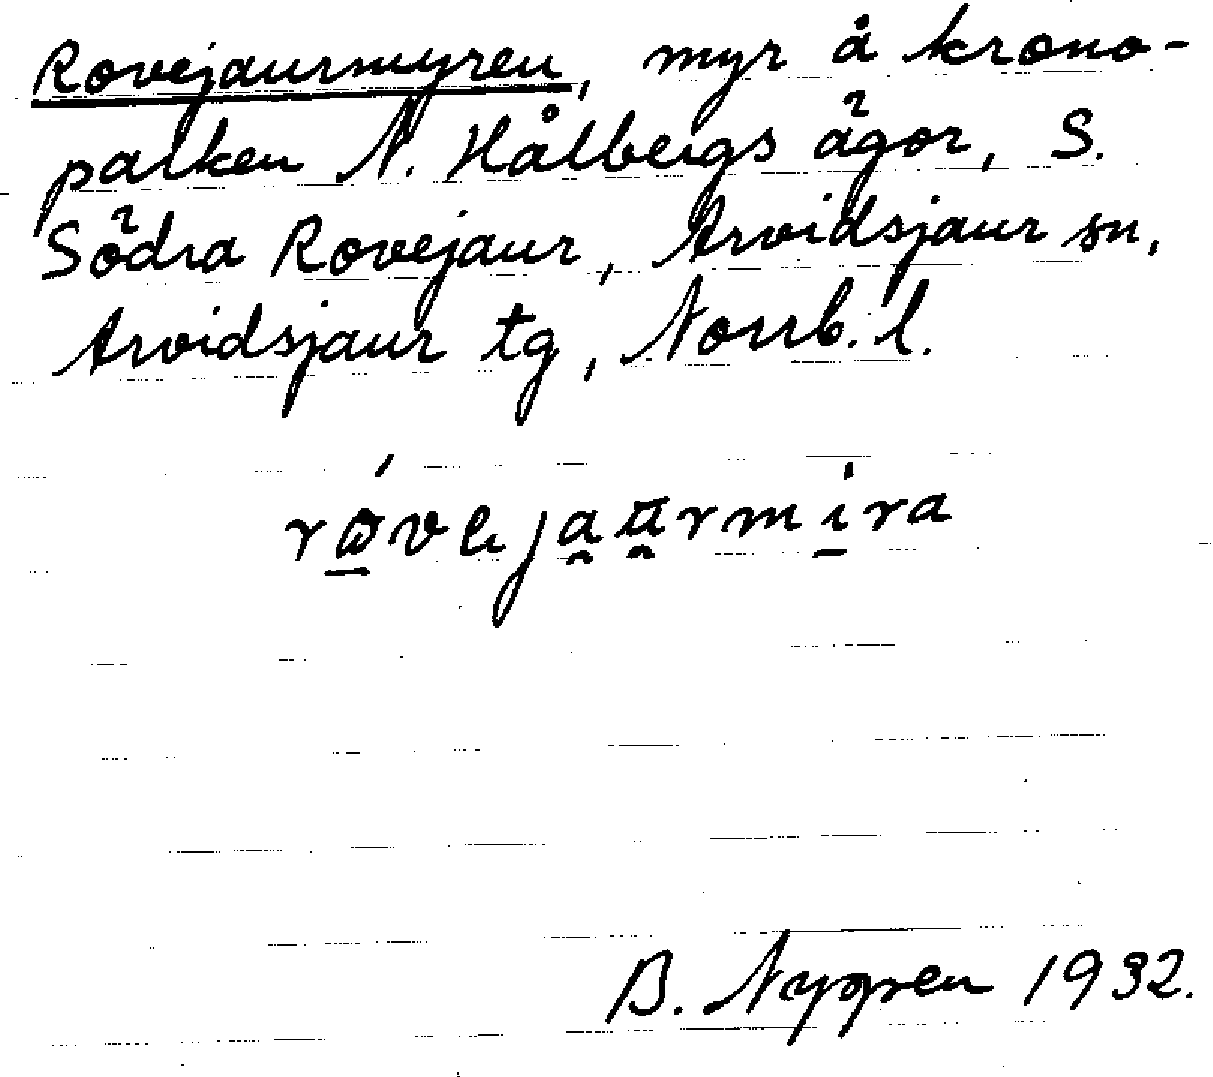 Rovejaurmyren, myr å krono-
parken N. Hålbergs ägor, S.
Södra Rovejaur, Arvidsjaur sn,
Arvidsjaur tg, Norrb. l.
B. Nygren 1932.